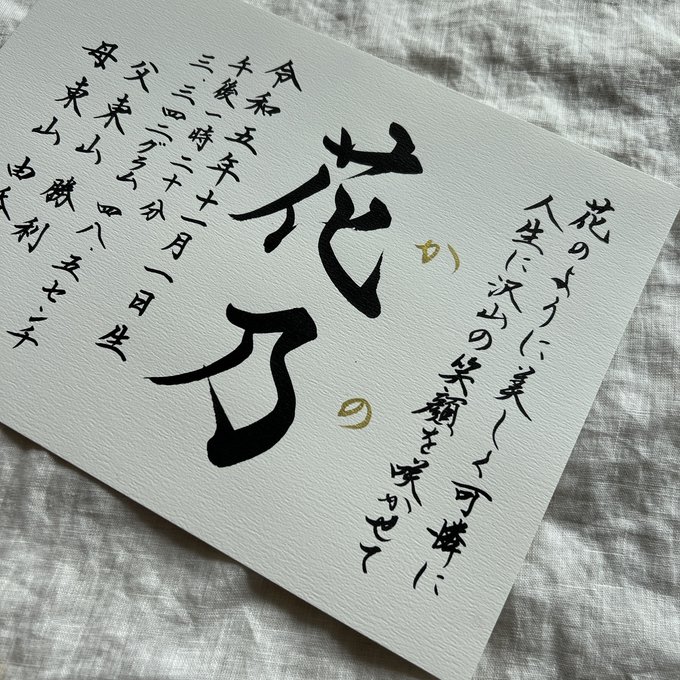 花のように美しく可憐に
人生に沢山の笑顔を咲かせて
かの
花乃
令和五年十一月一日生
午後一時二十分
三.三四二グラム 四八.五センチ
父 東山 勝利
母 東山 由